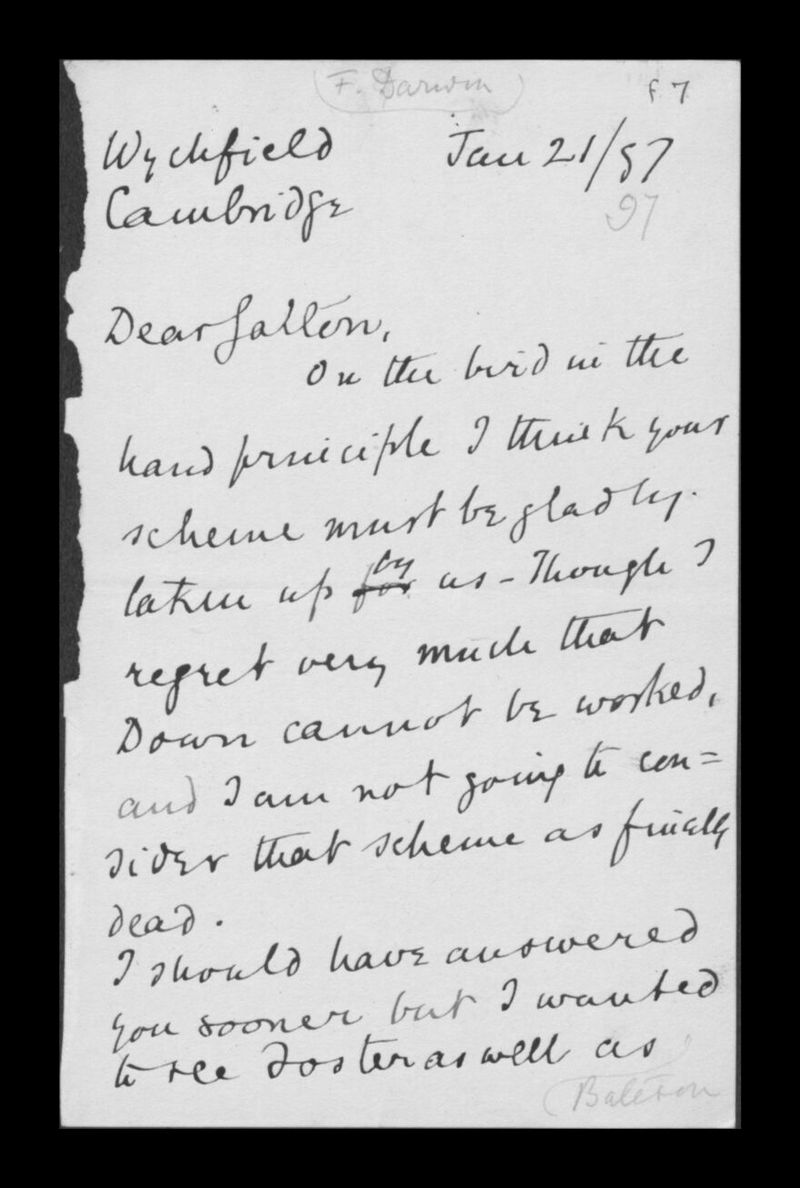 (F. Darwin)
f 7
Wychfield Jan 21/97
Cambridge
97
Dear Galton,
On the bird in the
hand principle I think your
scheme must be gladly
taken up for by us – Though I
regret very much that
Down cannot be worked,
and I am not going to con=
sider that scheme as finally
dead.
I should have answered
you sooner but I wanted
to see Foster as well as
(Bateson